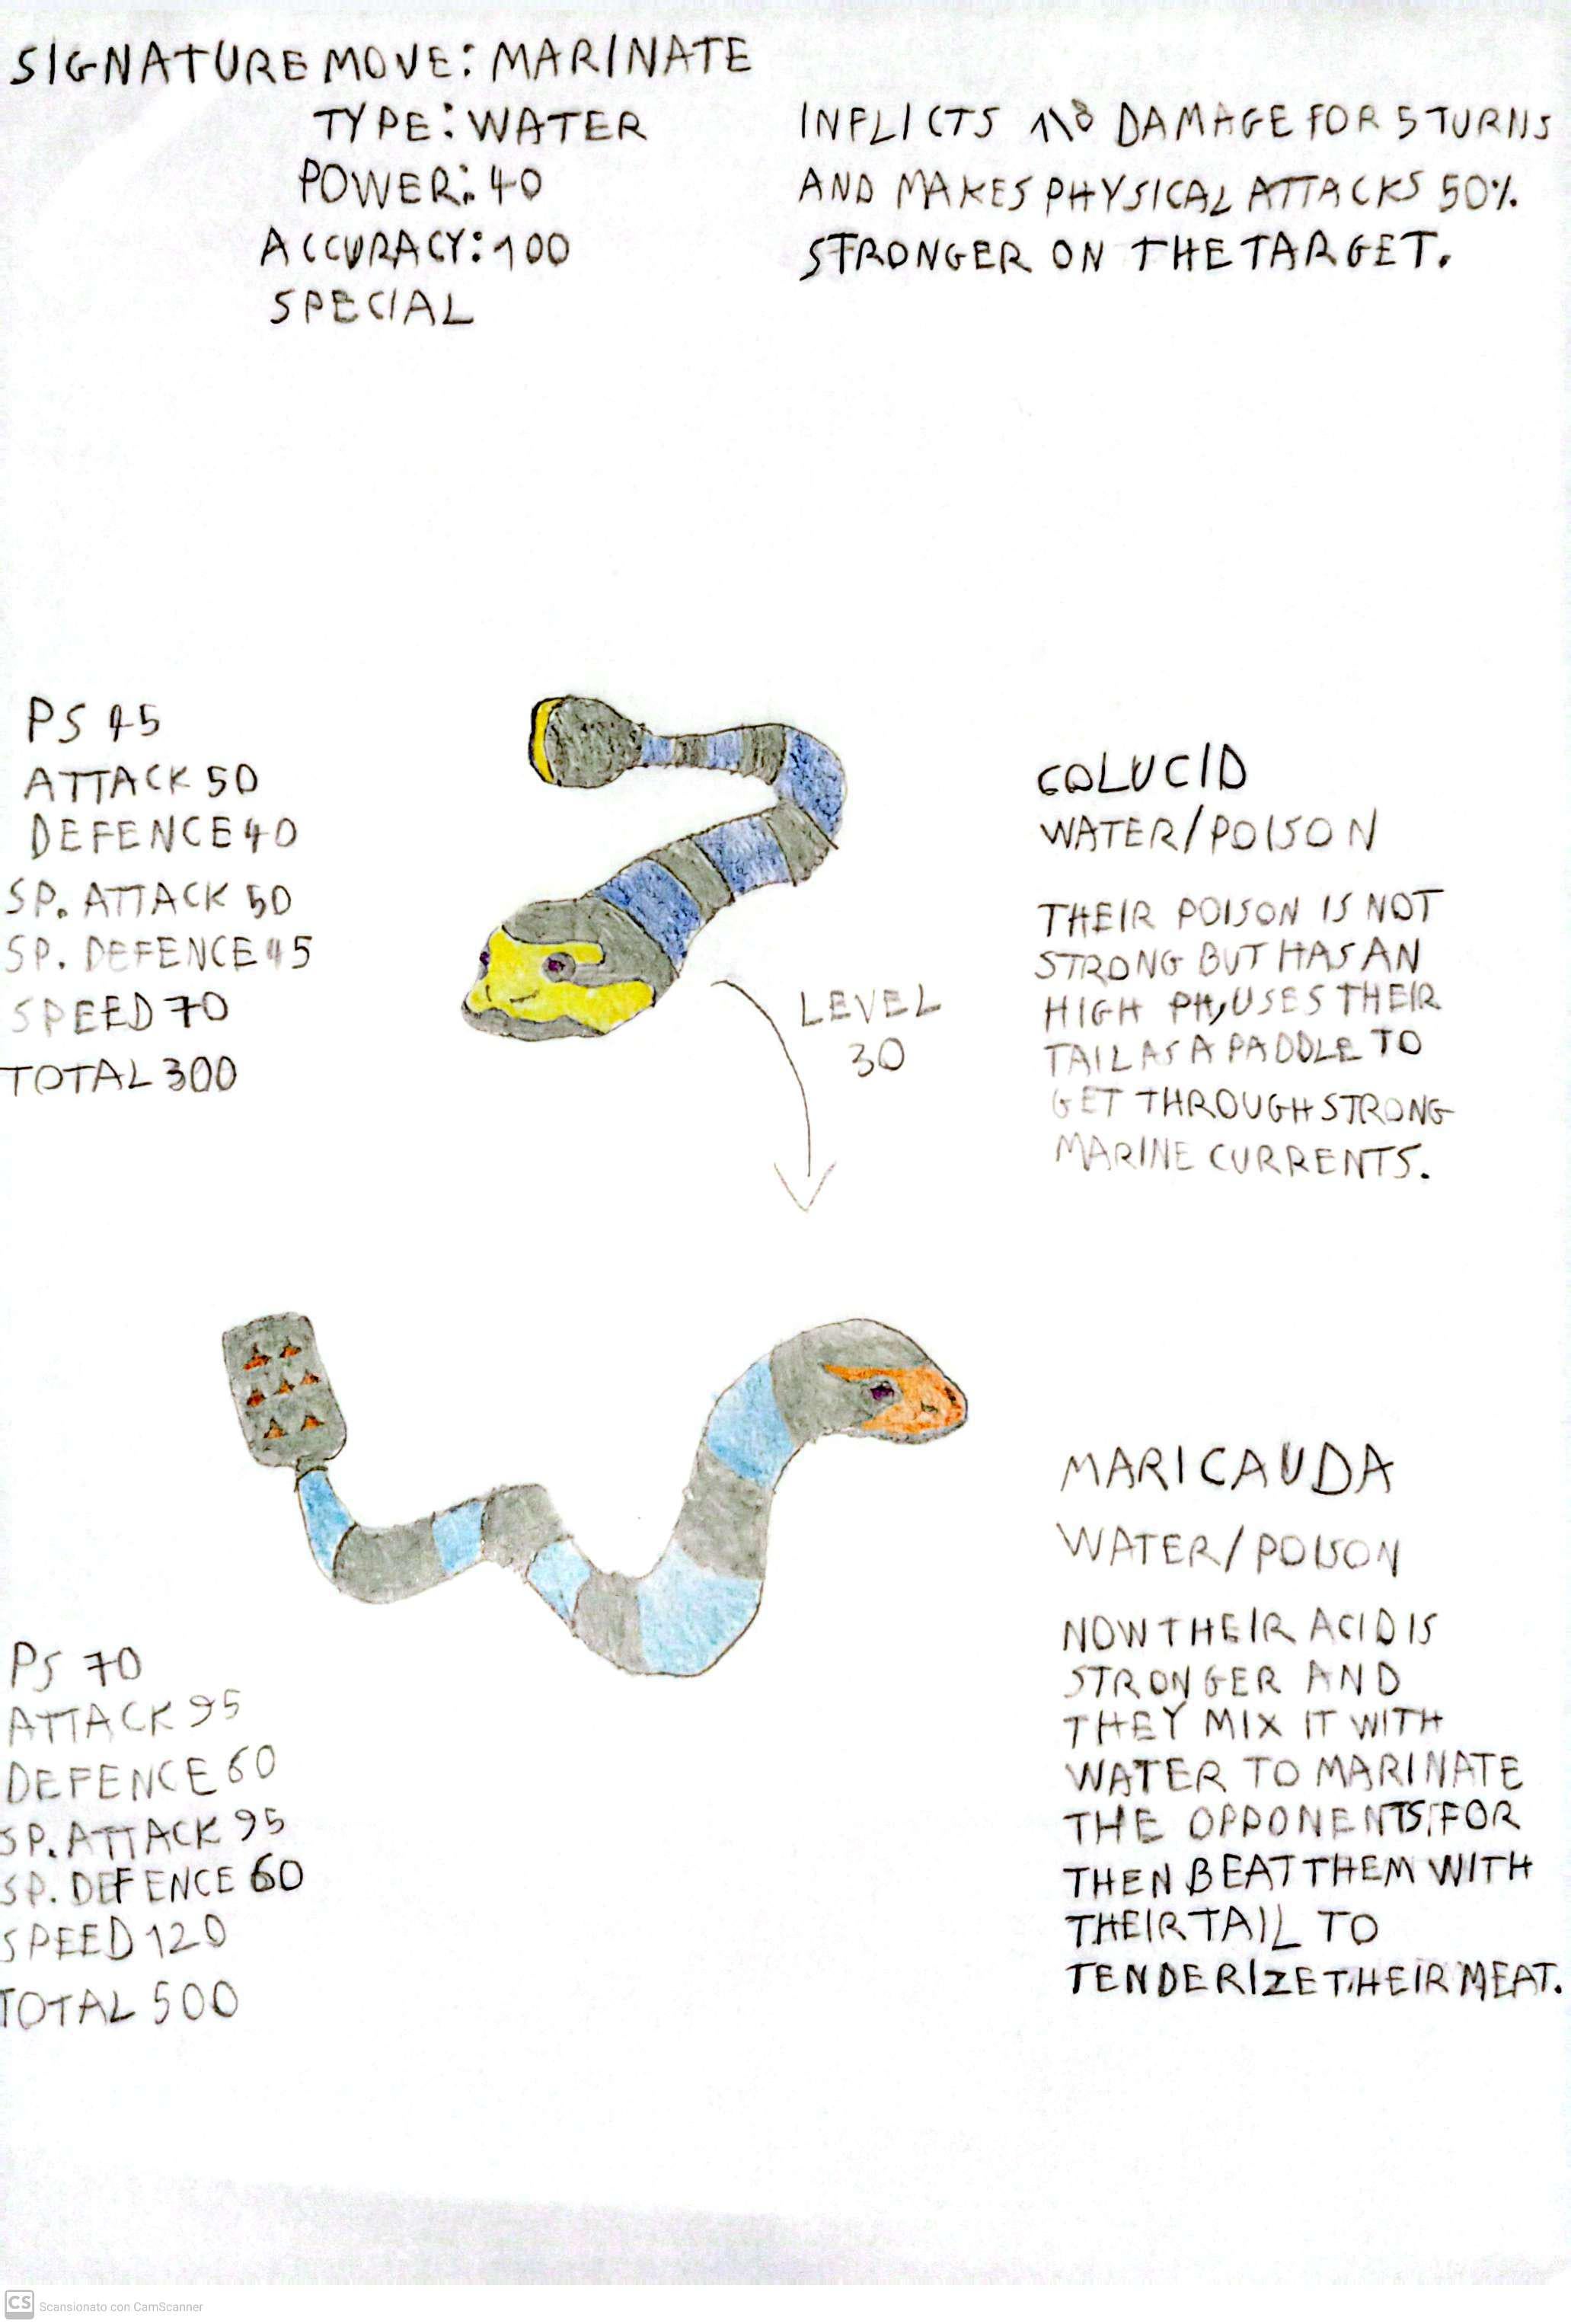 SIGNATURE MOVE: MARINATE
TYPE: WATER
POWER: 40
ACCURACY: 100
SPECIAL
INFLICTS 1\8 DAMAGE FOR 5 TURNS
AND MAKES PHYSICAL ATTACKS 50%
STRONGER ON THE TARGET.
PS 45
ATTACK 50
DEFENCE 40
SP. ATTACK 50
SP. DEFENCE 45
SPEED 70
TOTAL 300
COLUCID
WATER/POISON
THEIR POISON IS NOT
STRONG BUT HAS AN
HIGH PH, USES THEIR
TAIL AS A PADDLE TO
GET THROUGH STRONG
MARINE CURRENTS.
LEVEL
30
MARICAUDA
WATER/POISON
NOW THEIR ACID IS
STRONGER AND
THEY MIX IT WITH
WATER TO MARINATE
THE OPPONENTS, FOR
THEN BEAT THEM WITH
THEIR TAIL TO
TENDERIZE THEIR MEAT.
PS 70
ATTACK 95
DEFENCE 60
SP. ATTACK 95
SP. DEFENCE 60
SPEED 120
TOTAL 500
CS Scansionato con CamScanner